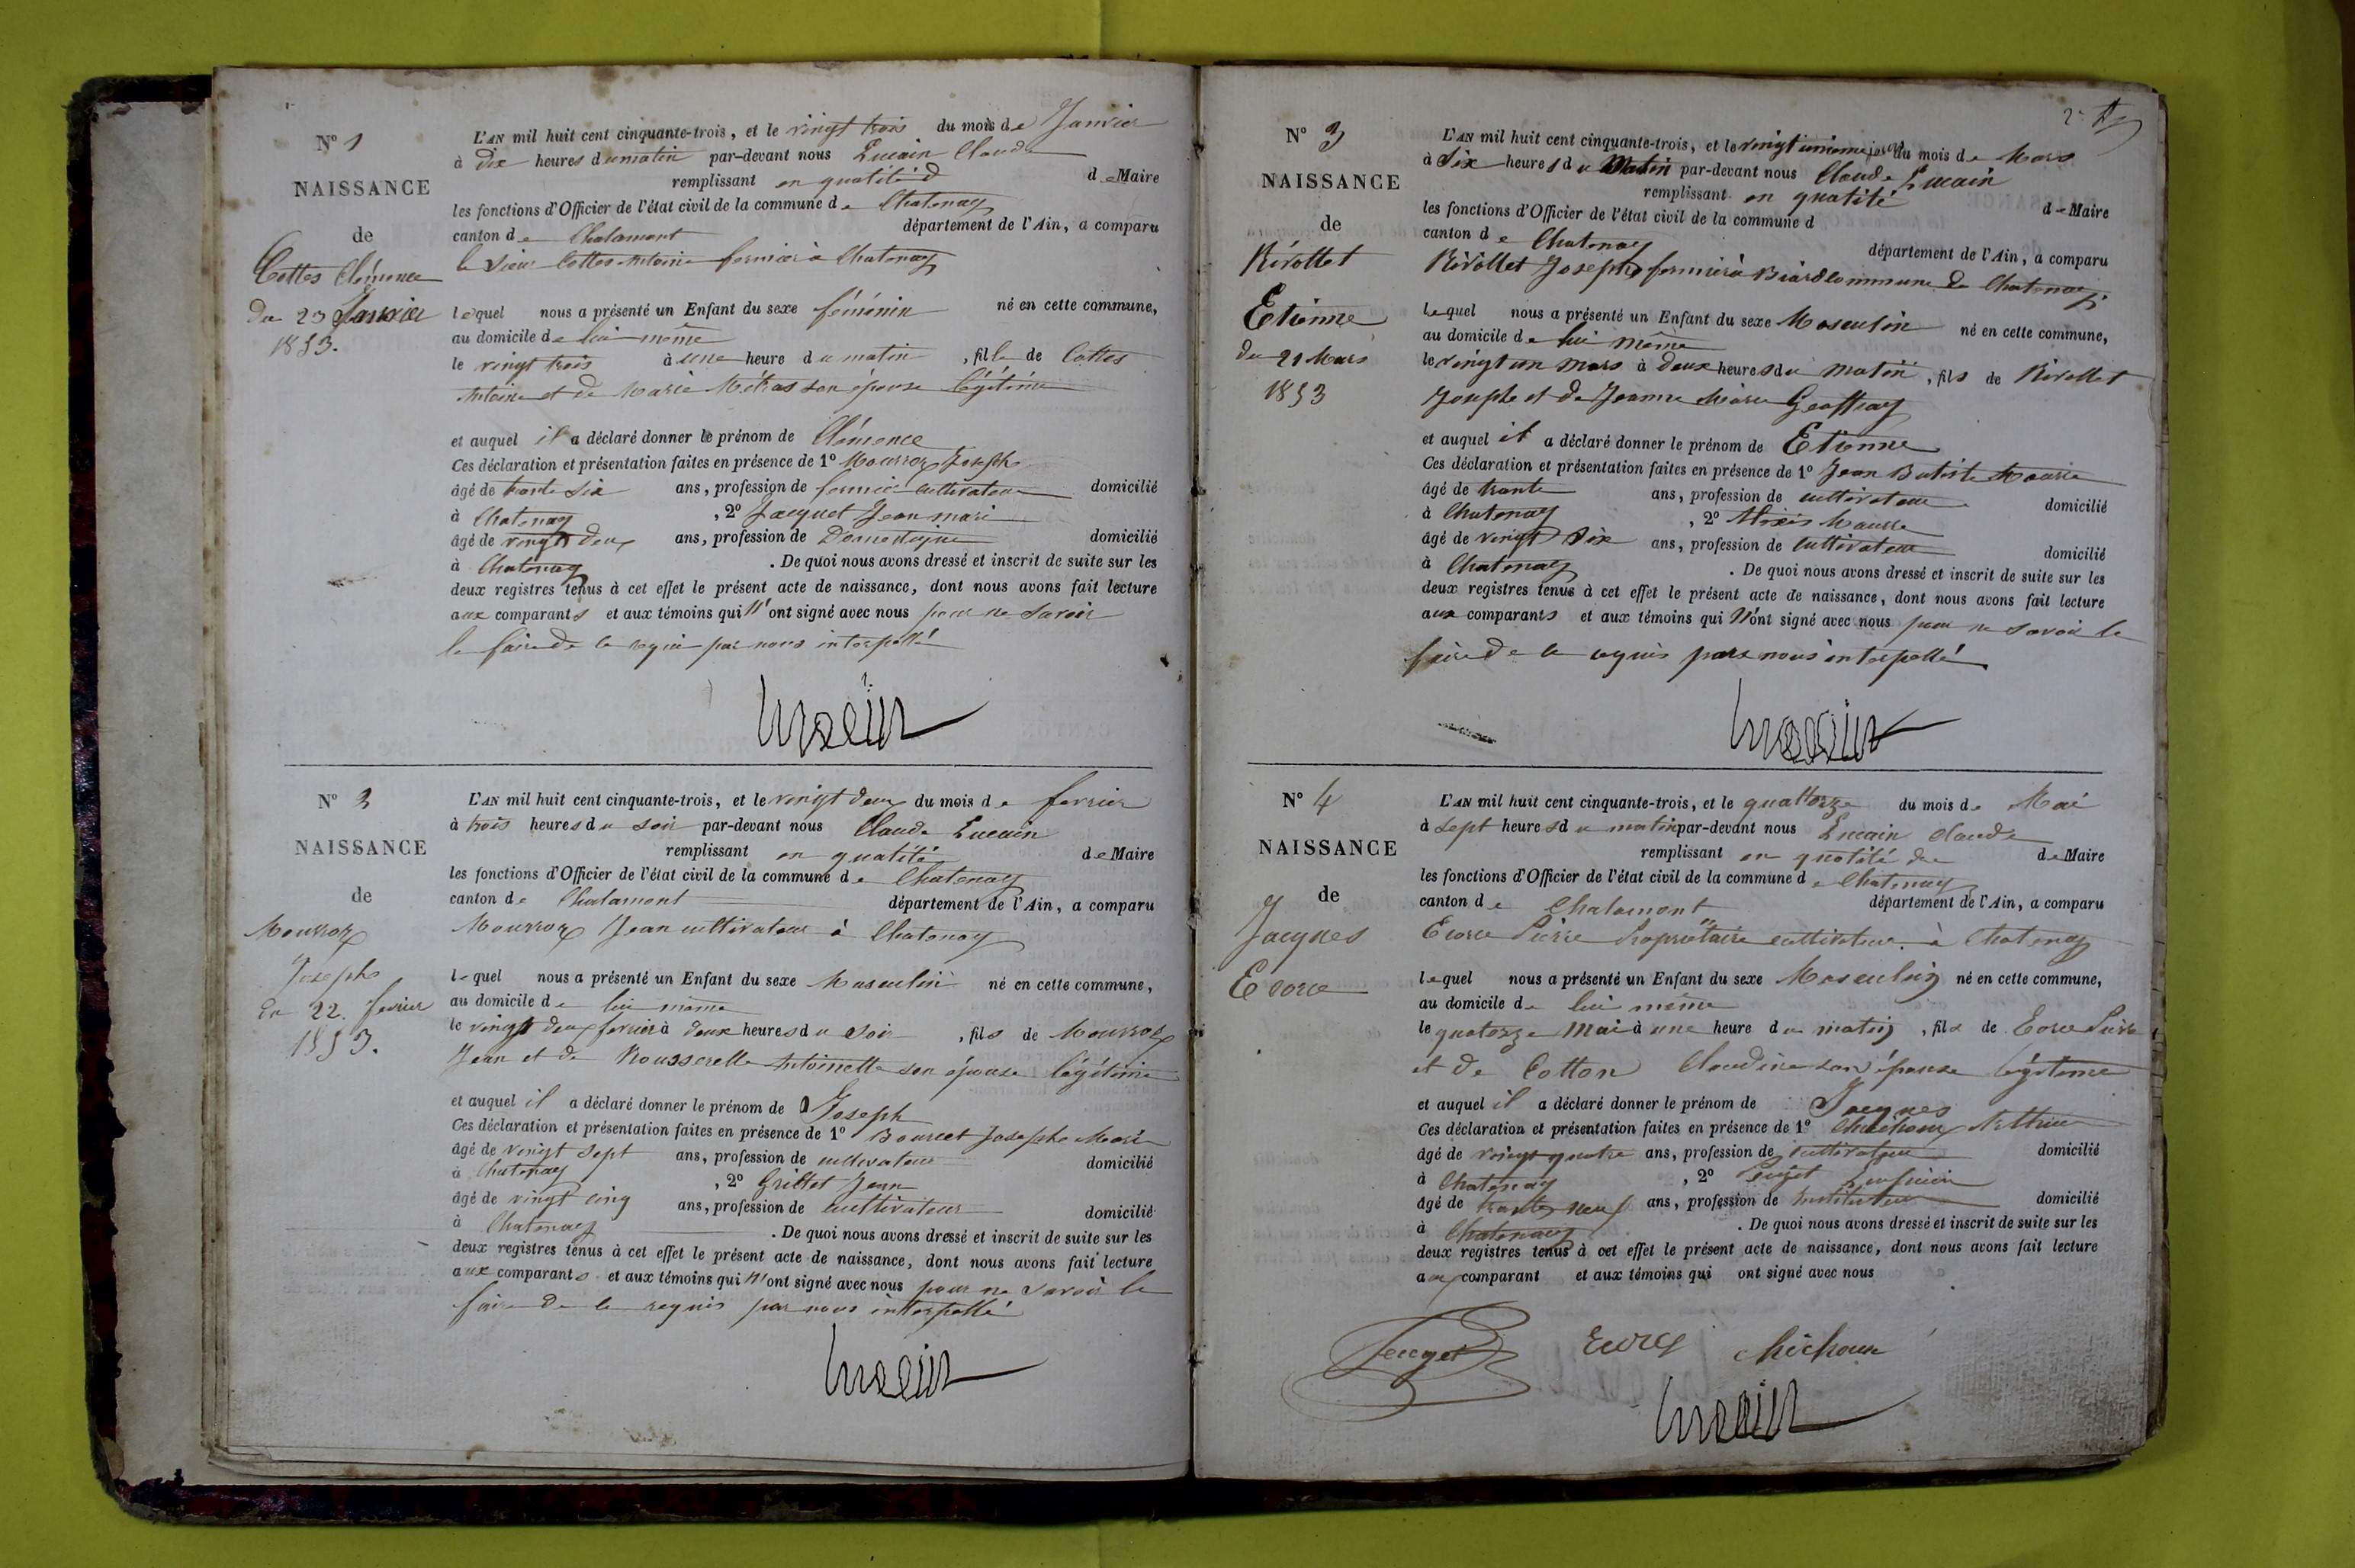 N° 1
NAISSANCE
de
Cottes Clémence
Du 23 Janvier
1853.
L'AN mil huit cent cinquante-trois, et le vingt trois du mois de Janvier
à dix heures du matin par-devant nous Lucain Claude
remplissant en qualité d de Maire
les fonctions d'Officier de l'état civil de la commune de Chatenay
canton de Chalamont département de l'Ain, a comparu
le Sieur Cottes Antoine fermier à Chatenay
lequel nous a présenté un Enfant du sexe féminin né en cette commune,
au domicile de lui même
le vingt trois à une heure du matin, fille de Cottes
Antoine et de Marie Métras son épouse légitime
et auquel il a déclaré donner le prénom de Clémence
Ces déclaration et présentation faites en présence de 1° Mourroz Joseph
âgé de trente six ans, profession de fermier cultivateur domicilié
à Chatenay, 2° Jacquet Jean mari
âgé de vingt deux ans, profession de Domestique domicilié
à Chatenay. De quoi nous avons dressé et inscrit de suite sur les
deux registres tenus à cet effet le présent acte de naissance, dont nous avons fait lecture
aux comparants et aux témoins qui n'ont signé avec nous pour ne savoir
le faire de ce requis par nous interpellé
Lucain
N° 3
NAISSANCE
de
Mourroz
Joseph
du 22. fevrier
1853.
L'AN mil huit cent cinquante-trois, et le vingt deux du mois de fevrier
à trois heures du soir par-devant nous Claude Lucain
remplissant en qualité de Maire
les fonctions d'Officier de l'état civil de la commune de Chatenay
canton de Chalamont département de l'Ain, a comparu
Mourroz Jean cultivateur à Chatenay
lequel nous a présenté un Enfant du sexe Masculin né en cette commune,
au domicile de lui même
le vingt deux fevrier à deux heures du soir, fils de Mourroz
Jean et de Rousserelle Antoinette son épouse légitime
et auquel il a déclaré donner le prénom de Joseph
Ces déclaration et présentation faites en présence de 1° Bourcet Joseph Marie
âgé de vingt sept ans, profession de cultivateur domicilié
à Chatenay, 2° Grillet Jean
âgé de vingt cinq ans, profession de cultivateur domicilié
à Chatenay. De quoi nous avons dressé et inscrit de suite sur les
deux registres tenus à cet effet le présent acte de naissance, dont nous avons fait lecture
aux comparants et aux témoins qui n'ont signé avec nous pour ne savoir le
faire de ce requis par nous interpellé
Lucain
2
N° 3
NAISSANCE
de
Rivollet
Etienne
du 21 Mars
1853
L'AN mil huit cent cinquante-trois, et le vingt unieme jour du mois de Mars
à Six heures du Matin par-devant nous Claude Lucain
remplissant en qualité de Maire
les fonctions d'Officier de l'état civil de la commune d
canton de Chatenay département de l'Ain, a comparu
Rivollet Joseph fermier à Biard commune de Chatenay
lequel nous a présenté un Enfant du sexe Masculin né en cette commune,
au domicile de lui même
le vingt un mars à deux heures du matin, fils de Rivollet
Josephe et de Jeanne Marie Geoffray
et auquel il a déclaré donner le prénom de Etienne
Ces déclaration et présentation faites en présence de 1° Jean Batiste
âgé de trente ans, profession de cultivateur domicilié
à Chatenay, 2° Alexis
âgé de vingt Six ans, profession de Cultivateur domicilié
à Chatenay. De quoi nous avons dressé et inscrit de suite sur les
deux registres tenus à cet effet le présent acte de naissance, dont nous avons fait lecture
aux comparants et aux témoins qui n'ont signé avec nous pour ne savoir le
faire de ce requis par nous interpellé
Lucain
N° 4
NAISSANCE
de
Jacques
Ecorce
L'AN mil huit cent cinquante-trois, et le quattorze du mois de Mai
à sept heures du matin par-devant nous Lucain Claude
remplissant en qualité de de Maire
les fonctions d'Officier de l'état civil de la commune de Chatenay
canton de Chalamont département de l'Ain, a comparu
Ecorce Pierre Propriétaire cultivateur à Chatenay
lequel nous a présenté un Enfant du sexe Masculin né en cette commune,
au domicile de lui même
le quatorze Mai à une heure du matin, fils de Ecorce Pierre
et de Cotton Claudine son épouse légitime
et auquel il a déclaré donner le prénom de Jacques
Ces déclaration et présentation faites en présence de 1° Chichoux
âgé de vingt quatre ans, profession de cultivateur domicilié
à Chatenay, 2°
âgé de trente neuf ans, profession de Instituteur domicilié
à Chatenay. De quoi nous avons dressé et inscrit de suite sur les
deux registres tenus à cet effet le présent acte de naissance, dont nous avons fait lecture
aux comparant et aux témoins qui ont signé avec nous
Ecorce Chichoux
Lucain